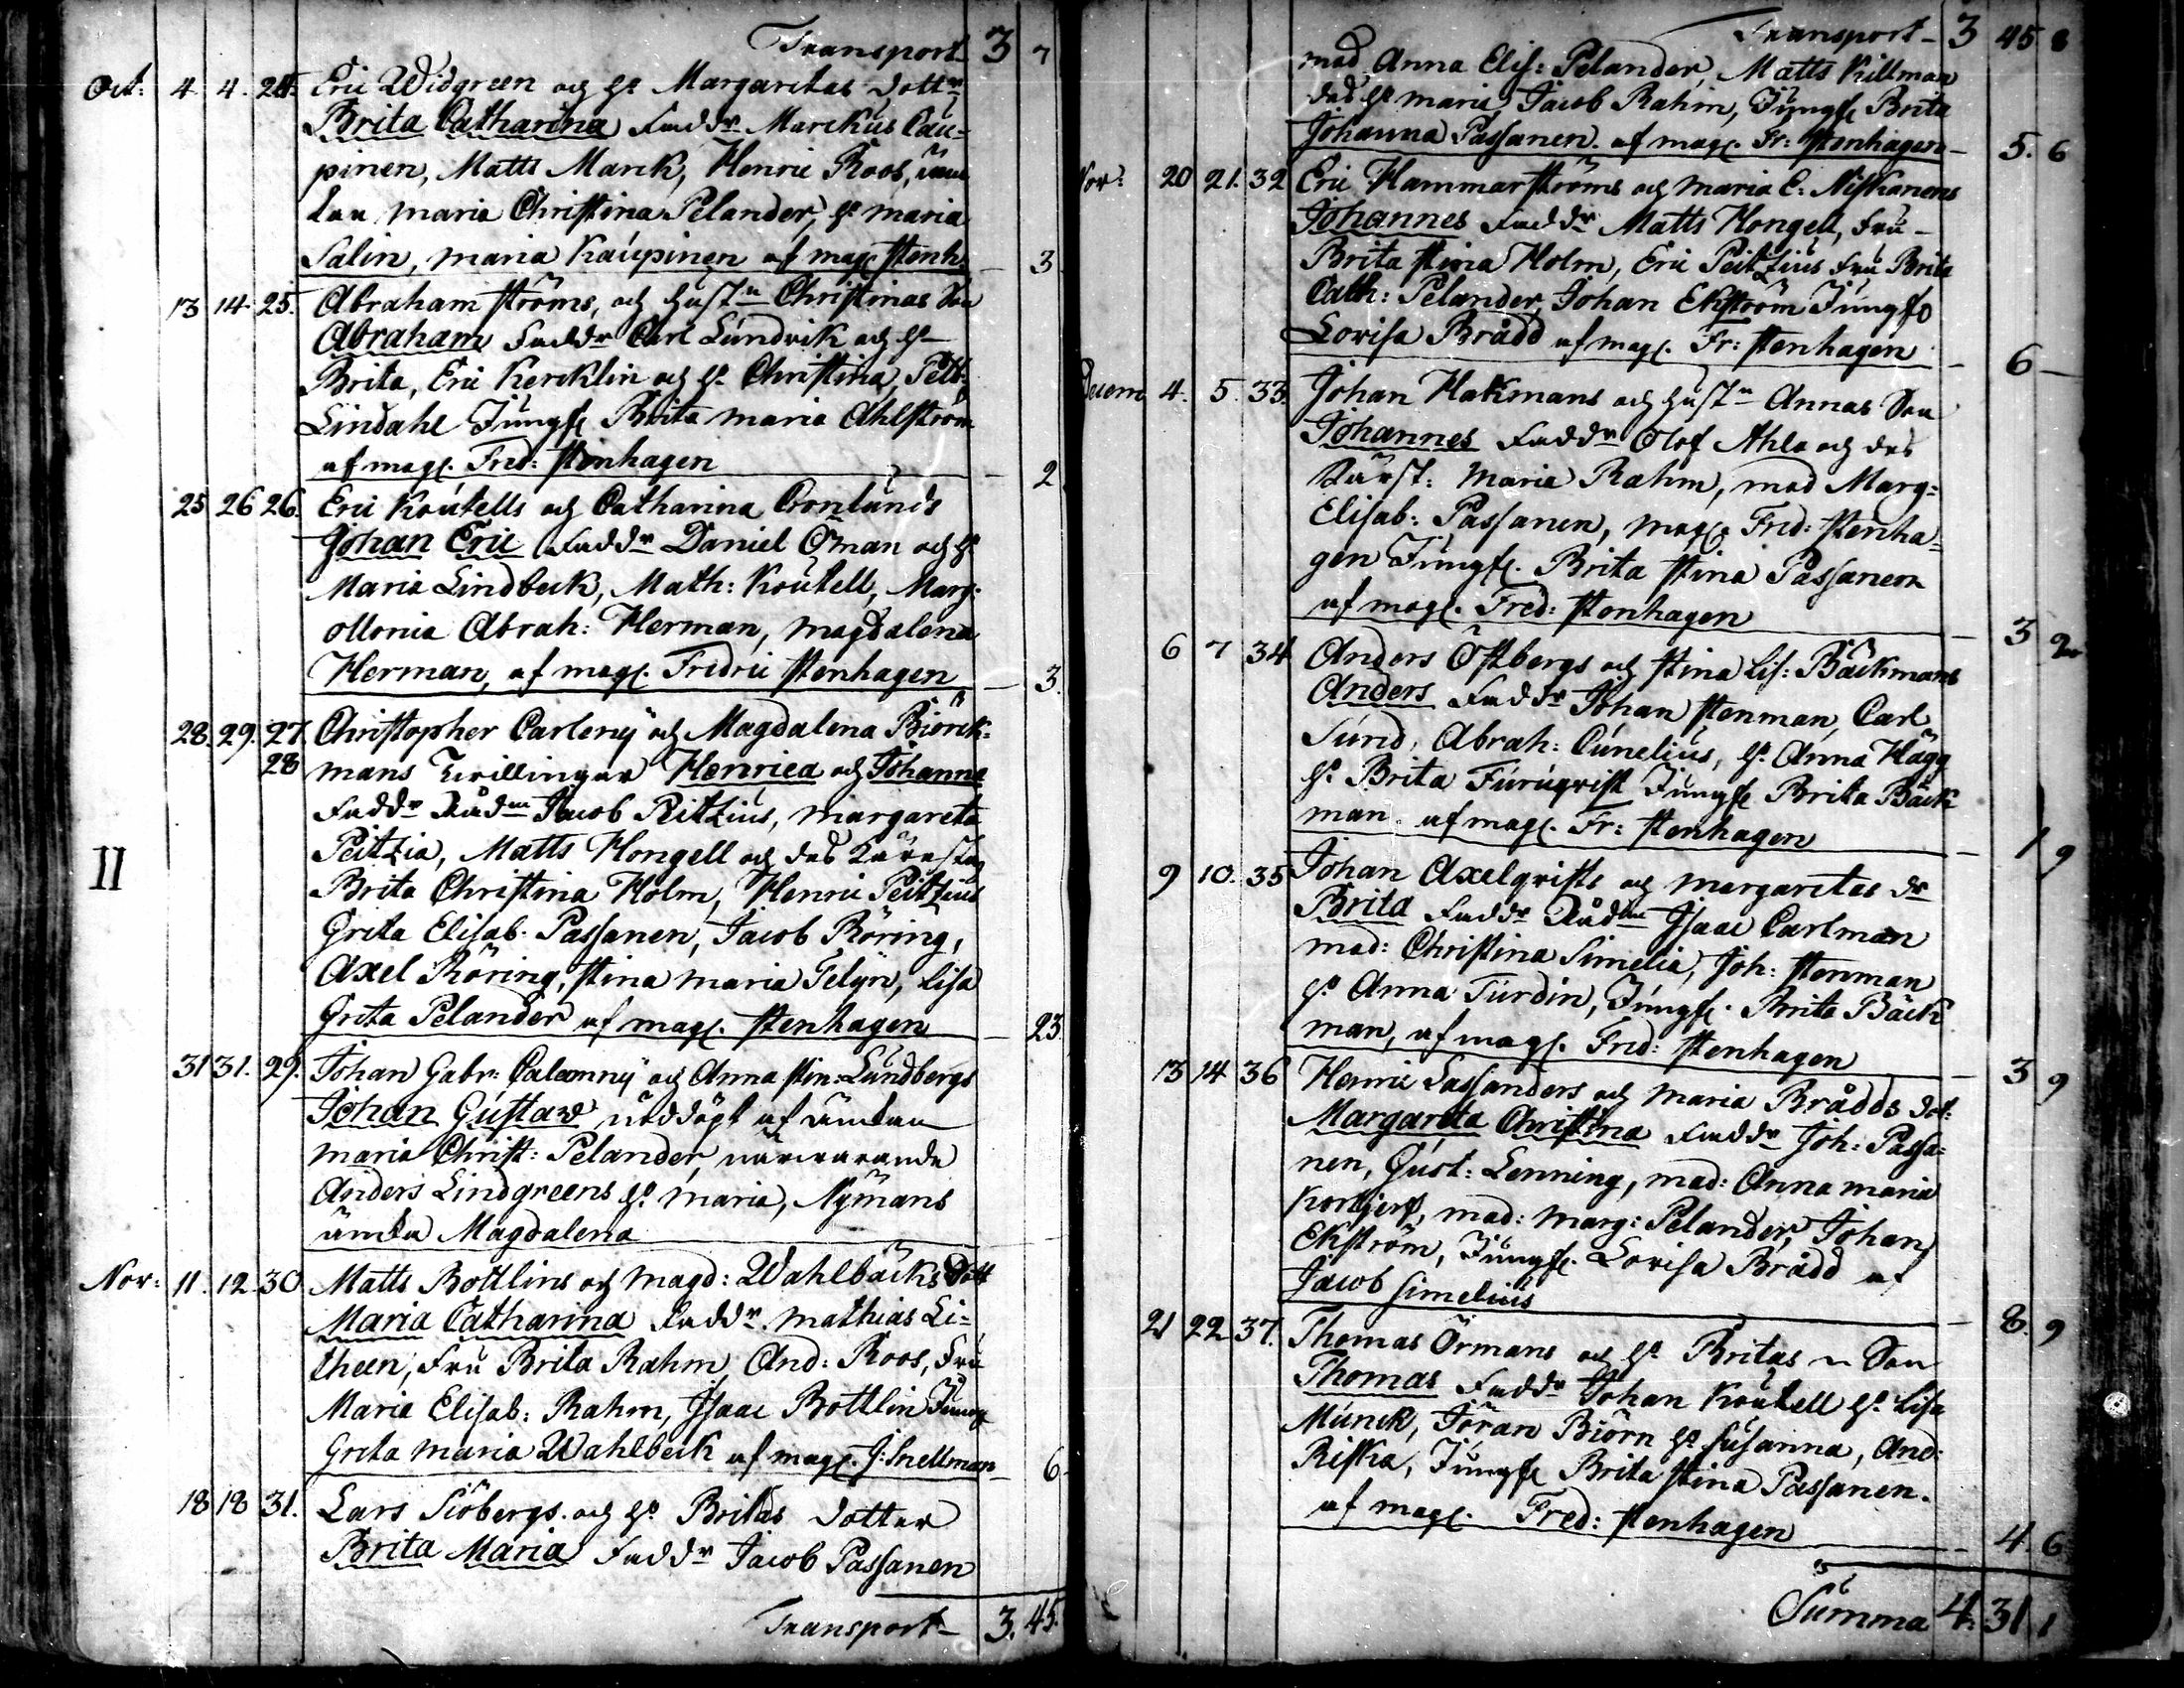 Transport 3 7
Oct: 4. 4. 24. Eric Widgreen och H:s Margaretas dott:r
Brita Catharina Fadd:r Marckus Cau-
pinen, Matts Marck, Henric Roos,
Maria Christina Pelander, H: Maria
Salin, Maria Kaupinen af mag. Stenh. 3
13 14 25. Abraham Ströms, och Hust:n Christinas Son
Abraham Fadd:r Carl Lundvik och H:
Brita, Eric Kercklin och H:s Christina, Pett:
Lindahl Jungf: Brita Maria Ahlström
af mag. Fred: Stenhagen 2
25 26 26. Eric Koutells och Catharina Cronlunds
Johan Eric Fadd:r Daniel Öman och H:s
Maria Lindbeck, Math: Koutell, Marg:
Monia Abrah: Herman, Magdalena
Herman, af mag. Fredric Stenhagen 3.
28. 29. 27. Christopher Carleny och Magdalena Biörck-
28 mans Tvillingar Henrica och Johanna
Fadd:r Rådm Jacob Peitzius, Margareta
Peitzia, Matts Hongell och des Kärasta
Brita Christina Holm, Henric Peitzius
Grita Elisab. Passanen, Jacob Röring,
II
Axel Röring, Stina Maria Felyn, Lisa
Greta Pelander af mag. Stenhagen 23
31 31. 29. Johan Gabr: Calamny och Anna Stin: Lundbergs
Johan Gustaw nöddöpt af änkan
Maria Christ: Pelander, närvarande
Anders Lindgreens H: Maria, Nymans
änka Magdalena
Nov: 11. 12. 30 Matts Bottlins och Magd: Wahlbäcks Dott
Maria Catharina Fadd:r Mathias Li-
theen, Fru Brita Rahm, And: Roos, Fru
Maria Elisab: Rahm, Isaac Bottlin Jungf
Greta Maria Wahlbeck af mag. J: Snellman 6
18 18 31. Lars Siöbergs och H:s Britas dotter
Brita Maria Fadd:r Jacob Passanen
Transport 3. 45.
Transport 3 45 8
mad Anna Elis: Pelander, Matts Killman
des H: Maria, Jacob Rahm, Jungf: Brita
Johanna Passanen. af mag. Fr: Stenhagen 5. 6
Nov: 20 21. 32 Eric Hammarströms och Maria E: Niskanens
Johannes Fadd:r Matts Hongell, Fru
Brita Stina Holm, Eric Peitzius Fru Brita
Cath: Pelander, Johan Ekström Jungfr
Lovisa Brådd af mag. Fr: Stenhagen 6 —
Decem 4. 5. 33. Johan Hakmans och Hust:n Annas Son
Johannes Fadd:r Olof Ahla och des
Kärest: Maria Rahm, mad Marg:
Elisab: Passanen, mag. Fred: Stenha-
gen Jungf. Brita Stina Passanen
af mag. Fred: Stenhagen 3 2
6 7 34 Anders Östbergs och Stina Lis: Bäckmans
Anders Fadd:r Johan Stenman, Carl
Sund, Abrah: Cunelius, H:s Anna Hägg
H:s Brita Furuqvist Jungf: Brita Bäck
man. af mag. Fr: Stenhagen 1 9
9 10. 35 Johan Axelqvists och Margaretas dr
Brita Fadd:r Rådm Isaac Carlman
mad: Christina Simelia, Joh: Stenman
H:s Anna Turdin, Jungf. Brita Bäck
man, af mag. Fred: Stenhagen 3 9
13 14 36 Henric Lassanders och Maria Brådds dot:
Margareta Christina Fadd:r Joh: Passa-
nen, Gust: Lenning, mad: Anna Maria
mad: Marg: Pelander, Johan
Ekström, Jungf. Lovisa Brådd af
Jacob Simelius 8. 9
21 22 37. Thomas Örmans och H:s Britas Son
Thomas Fadd:r Johan Koutell H:s Lisa
Munck, Jöran Biörn H:s Susanna, And:
Riska, Jungf: Brita Stina Passanen.
af mag. Fred: Stenhagen 4 6
Summa 4. 31 1